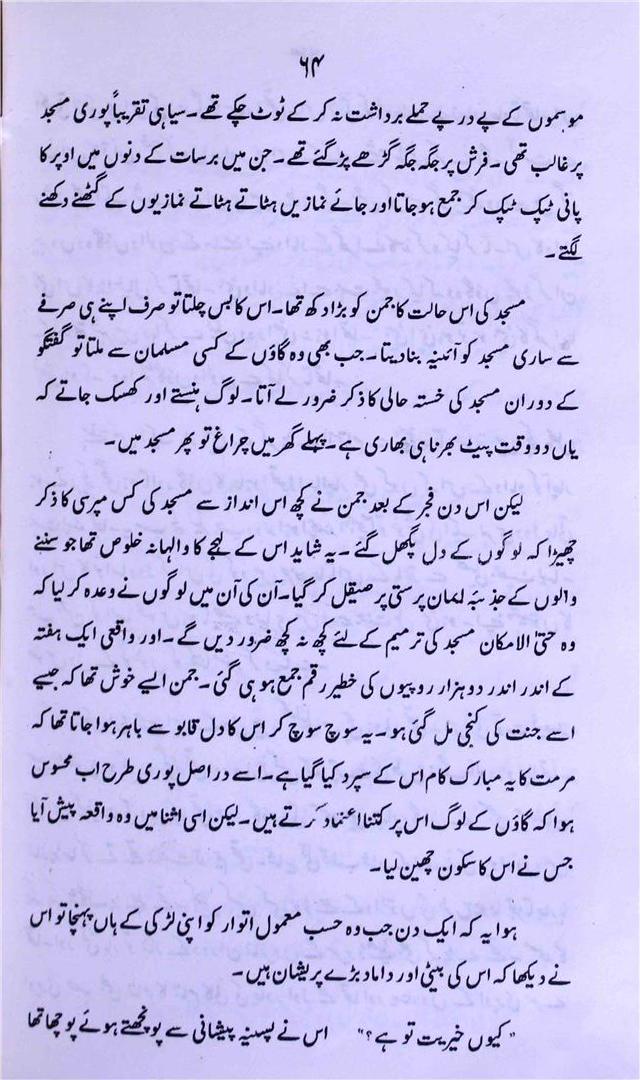 ۶۴
موسموں کے پے در پے حملے برداشت نہ کر کے ٹوٹ چکے تھے۔ سیاہی تقریباً پوری مسجد
پر غالب تھی۔ فرش پر جگہ جگہ گڑھے پڑ گئے تھے۔ جن میں برسات کے دنوں میں اوپر کا
پانی ٹپک ٹپک کر جمع ہو جاتا اور جائے نمازیں ہٹاتے ہٹاتے نمازیوں کے گھٹنے دکھنے
لگتے۔
مسجد کی اس حالت کا جمن کو بڑا دکھ تھا۔ اس کا بس چلتا تو صرف اپنے ہی صرفے
سے ساری مسجد کو آئینہ بنا دیتا۔ جب بھی وہ گاؤں کے کسی مسلمان سے ملتا تو گفتگو
کے دوران مسجد کی خستہ حالی کا ذکر ضرور لے آتا۔ لوگ ہنستے اور کھسک جاتے کہ
یاں دو وقت پیٹ بھرنا ہی بھاری ہے۔ پہلے گھر میں چراغ تو پھر مسجد میں۔
لیکن اس دن فجر کے بعد جمن نے کچھ اس انداز سے مسجد کی کس مپرسی کا ذکر
چھیڑا کہ لوگوں کے دل پگھل گئے۔ یہ شاید اس کے لہجے کا والہانہ خلوص تھا جو سننے
والوں کے جذبۂ ایمان پرستی پر صیقل کر گیا۔ آن کی آن میں لوگوں نے وعدہ کر لیا کہ
وہ حتیٰ الامکان مسجد کی ترمیم کے لئے کچھ نہ کچھ ضرور دیں گے۔ اور واقعی ایک ہفتہ
کے اندر اندر دو ہزار روپیوں کی خطیر رقم جمع ہو ہی گئی۔ جمن ایسے خوش تھا کہ جیسے
اسے جنت کی کنجی مل گئی ہو۔ یہ سوچ سوچ کر اس کا دل قابو سے باہر ہوا جاتا تھا کہ
مرمت کا یہ مبارک کام اس کے سپرد کیا گیا ہے۔ اسے دراصل پوری طرح اب محسوس
ہوا کہ گاؤں کے لوگ اس پر کتنا اعتماد کرتے ہیں۔ لیکن اسی اثنا میں وہ واقعہ پیش آیا
جس نے اس کا سکون چھین لیا۔
ہوا یہ کہ ایک دن جب وہ حسب معمول اتوار کو اپنی لڑکی کے ہاں پہنچا تو اس
نے دیکھا کہ اس کی بیٹی اور داماد بڑے پریشان ہیں۔
"کیوں خیریت تو ہے؟" اس نے پسینہ پیشانی سے پونچھتے ہوئے پوچھا تھا